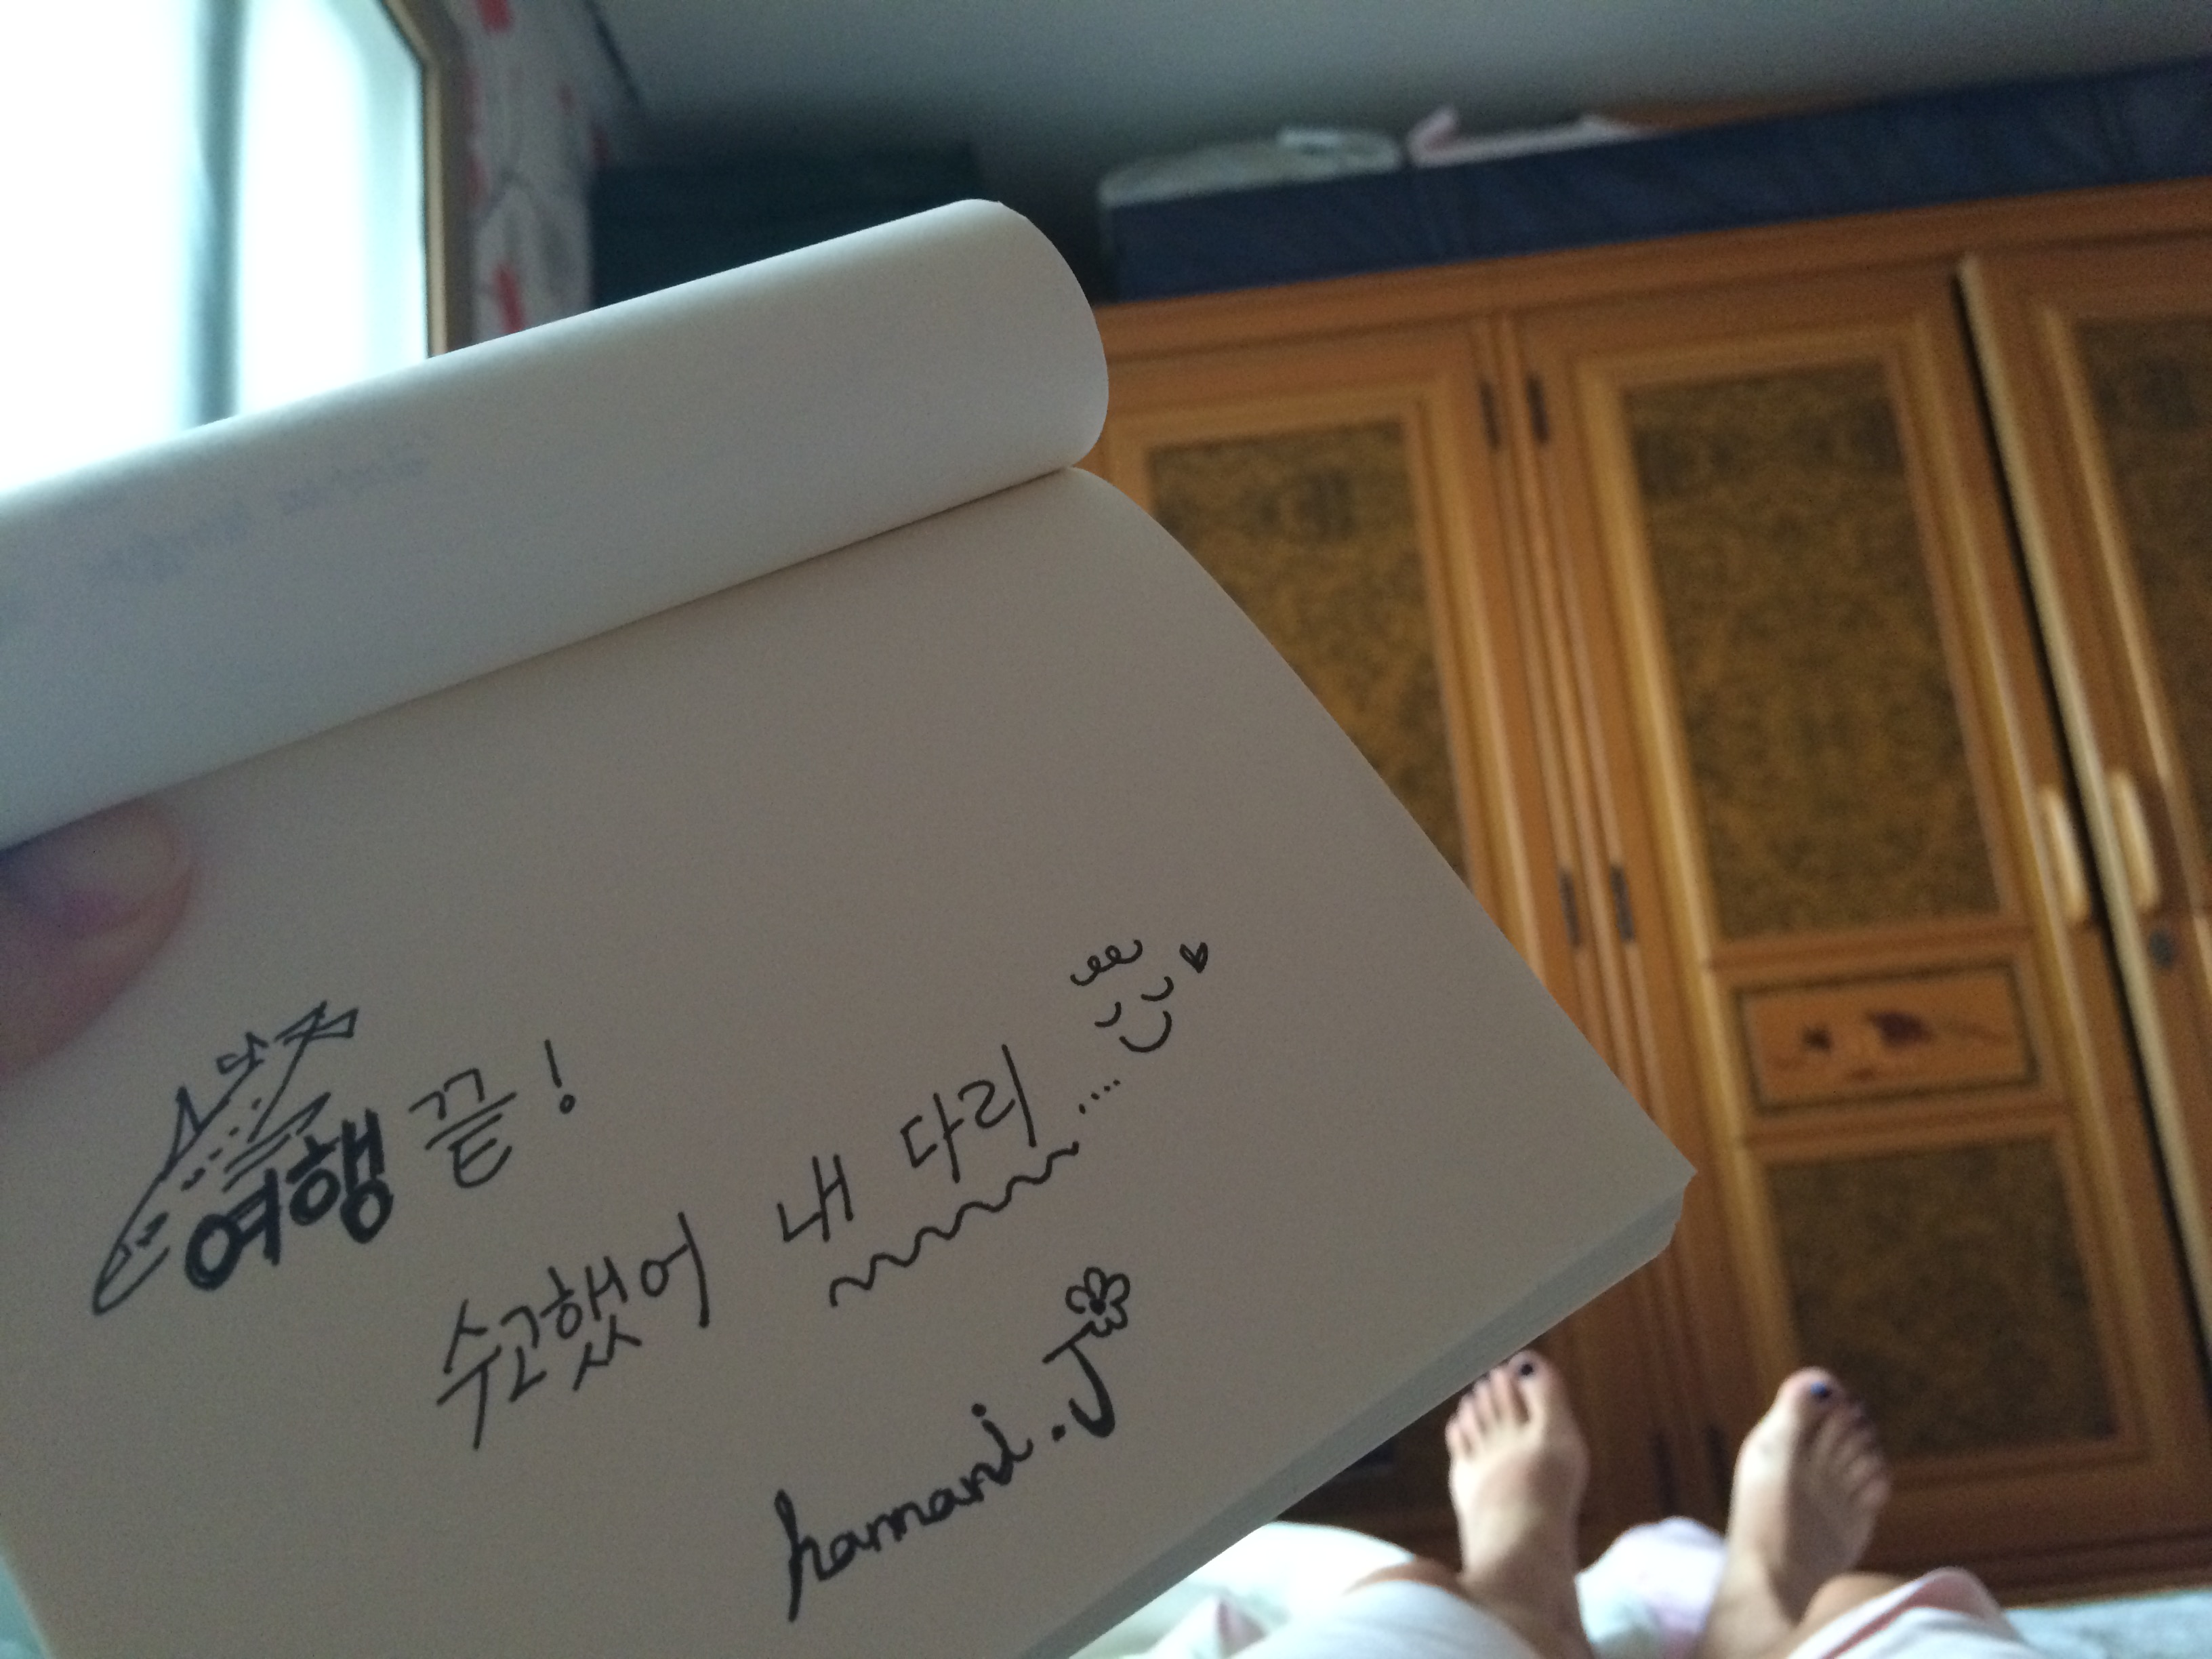 여행 끝!
수고했어 내 다리....
hamani.J